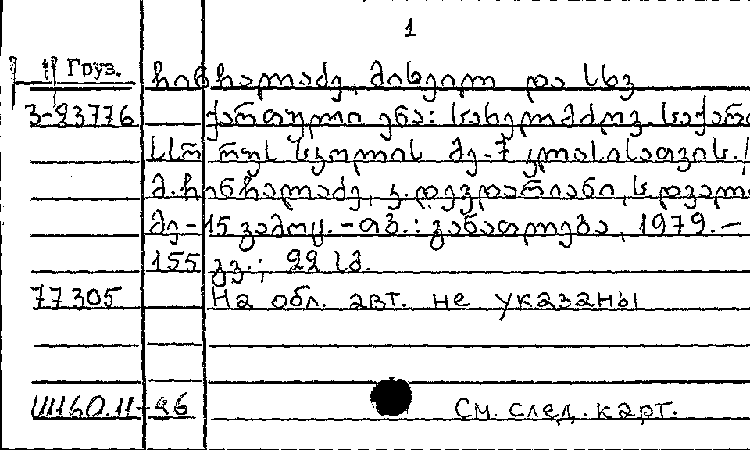 1
Груз. ჩინჩალაძე, მიხეილ და სხვ
3-23776 ქართული ენა: სახელმძღვ. საქართ
სსრ რუს. სკოლის მე-7 კლასისათვის. /
მ. ჩინჩალაძე, კ. დევდარიანი, ს. დვალი
მე-15 გამოც. - თბ.: განათლება, 1979. -
155 გვ.; 22 სმ.
77305 На обл. авт. не указаны
Ш160.11-96 См. след. карт.